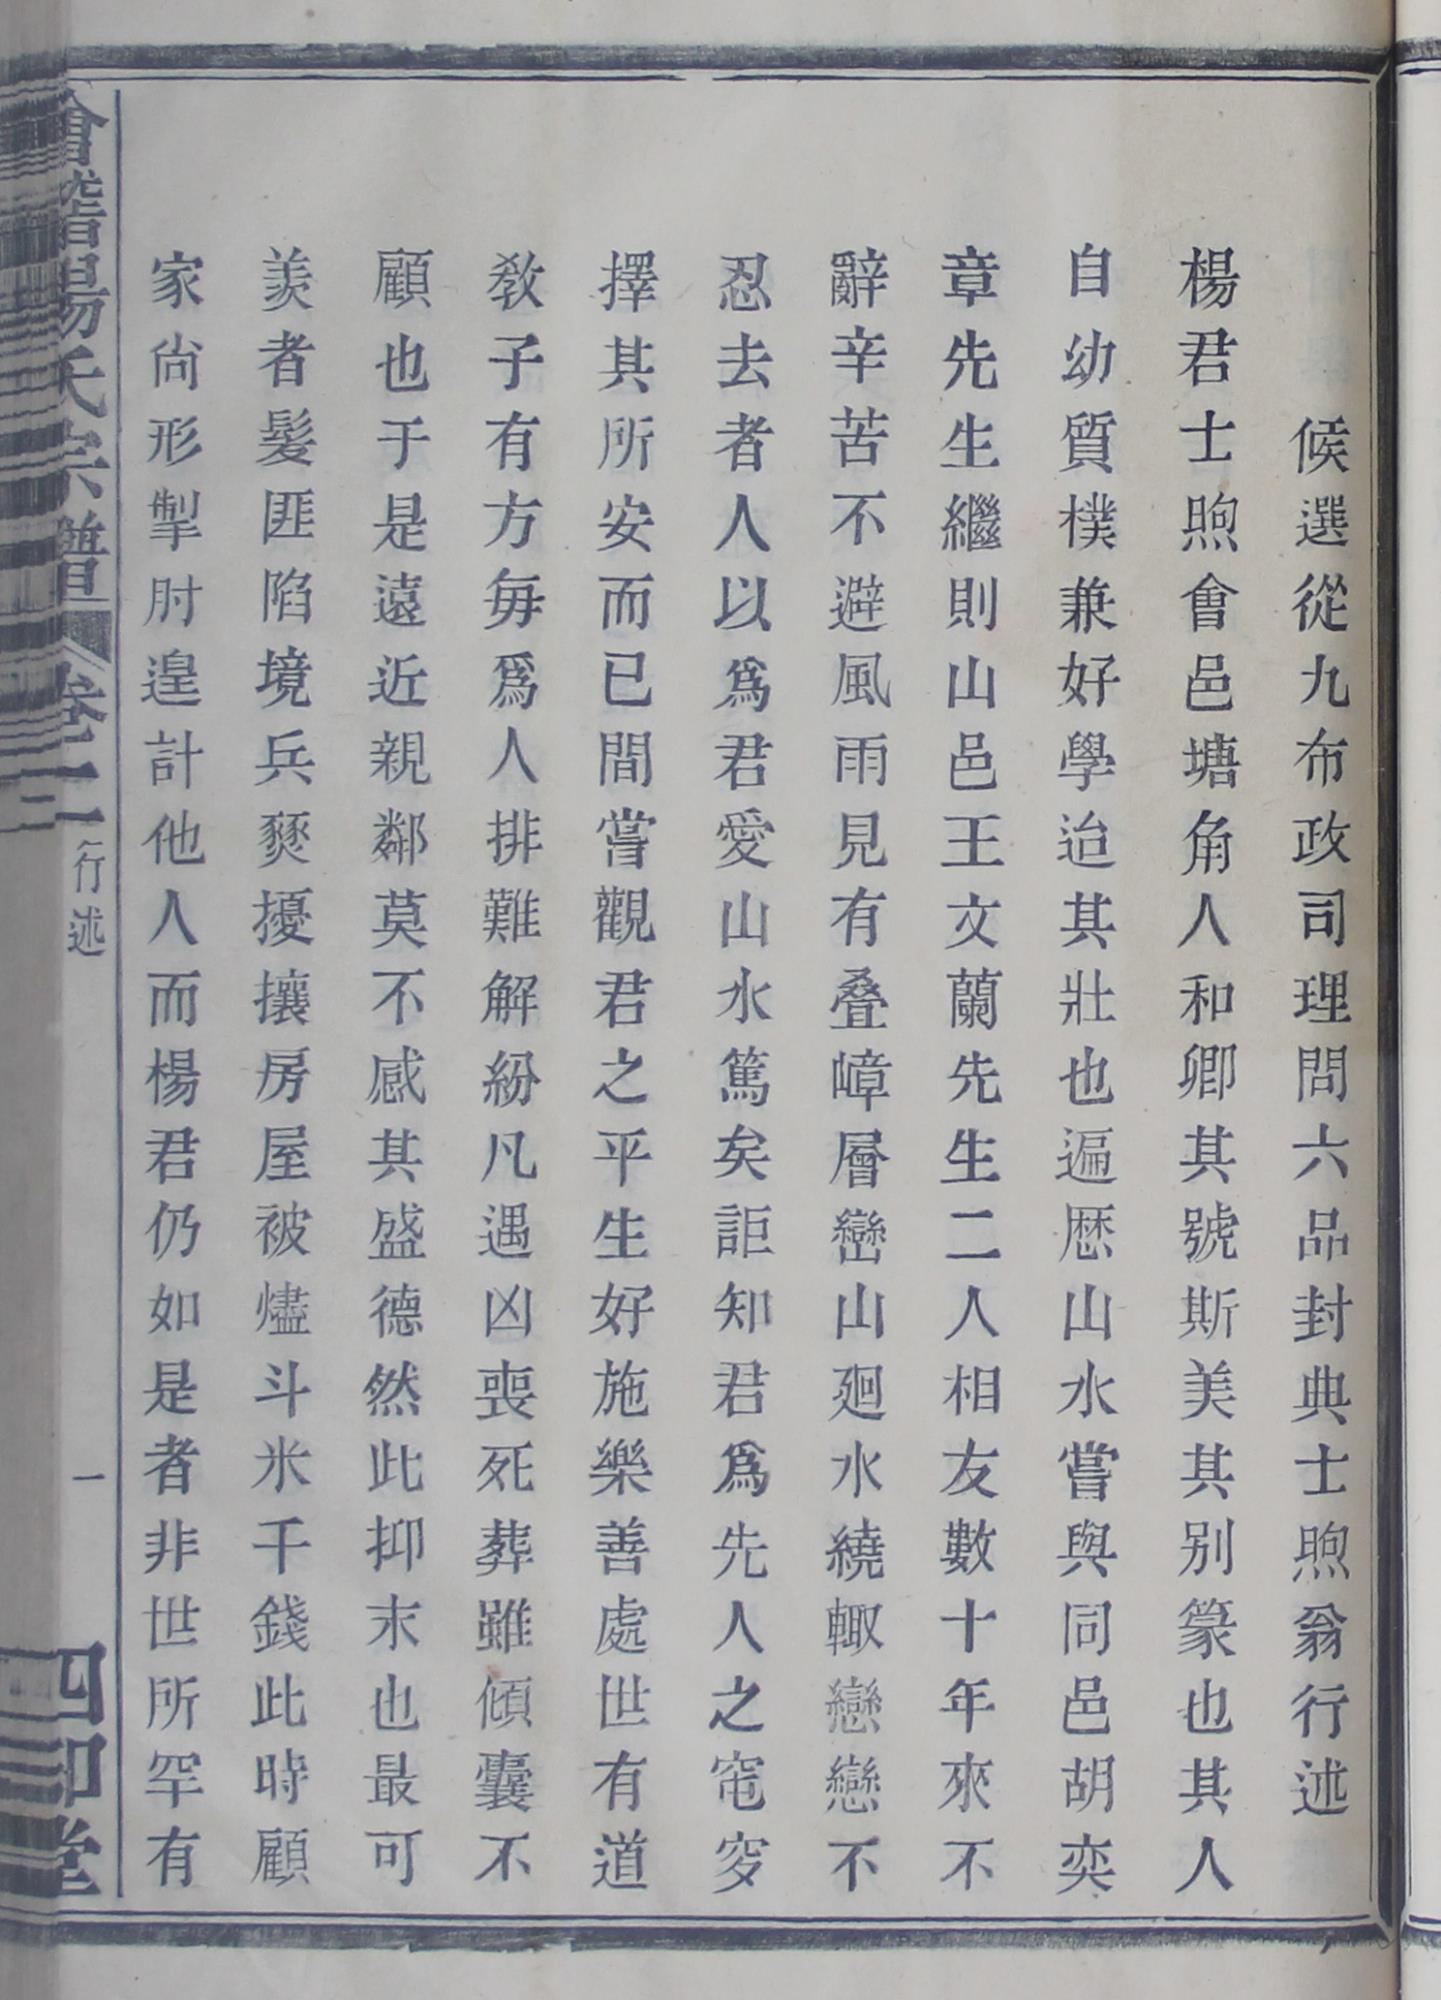 候選從九布政司理問六品封典士煦翁行述
楊君士煦會邑塘角人和卿其號斯美其别篆也其人
自幼質樸兼好學迨其壯也遍歷山水嘗與同邑胡奕
章先生繼則山邑王文蘭先生二人相友數十年來不
辭辛苦不避風雨見有叠嶂層巒山廻水繞輙戀戀不
忍去者人以爲君愛山水篤矣詎知君爲先人之窀穸
擇其所安而已間嘗觀君之平生好施樂善處世有道
敎子有方每爲人排難解紛凡遇凶喪死葬雖傾囊不
顧也于是遠近親鄰莫不感其盛德然此抑末也最可
羨者髮匪陷境兵燹擾攘房屋被燼斗米千錢此時顧
家尙形掣肘遑計他人而楊君仍如是者非世所罕有
會稽楊氏宗譜 卷二 行述 一 四知堂